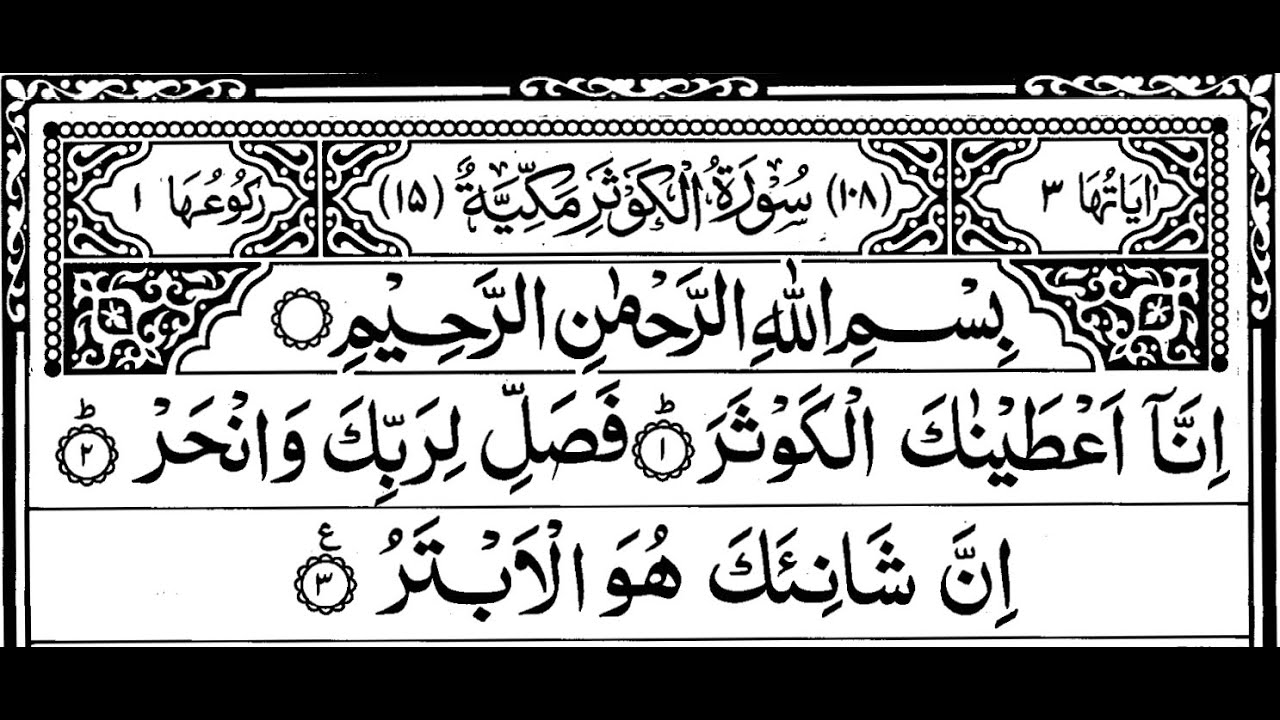 اٰيَاتُهَا ٣ (١٠٨) سُوْرَةُ الْكَوْثَرِ مَكِّيَّةٌ (١٥) رَكُوْعُهَا ١
بِسْمِ اللّٰهِ الرَّحْمٰنِ الرَّحِيْمِ
اِنَّآ اَعْطَيْنٰكَ الْكَوْثَرَ ؕ﴿١﴾ فَصَلِّ لِرَبِّكَ وَانْحَرْ ؕ﴿٢﴾
اِنَّ شَانِئَكَ هُوَ الْاَبْتَرُ ﴿٣﴾ ع